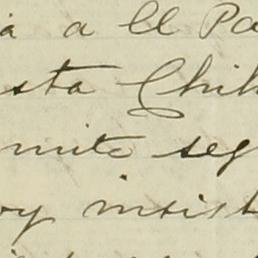 a a El Pa
sta Chih
mite seg
oy insist